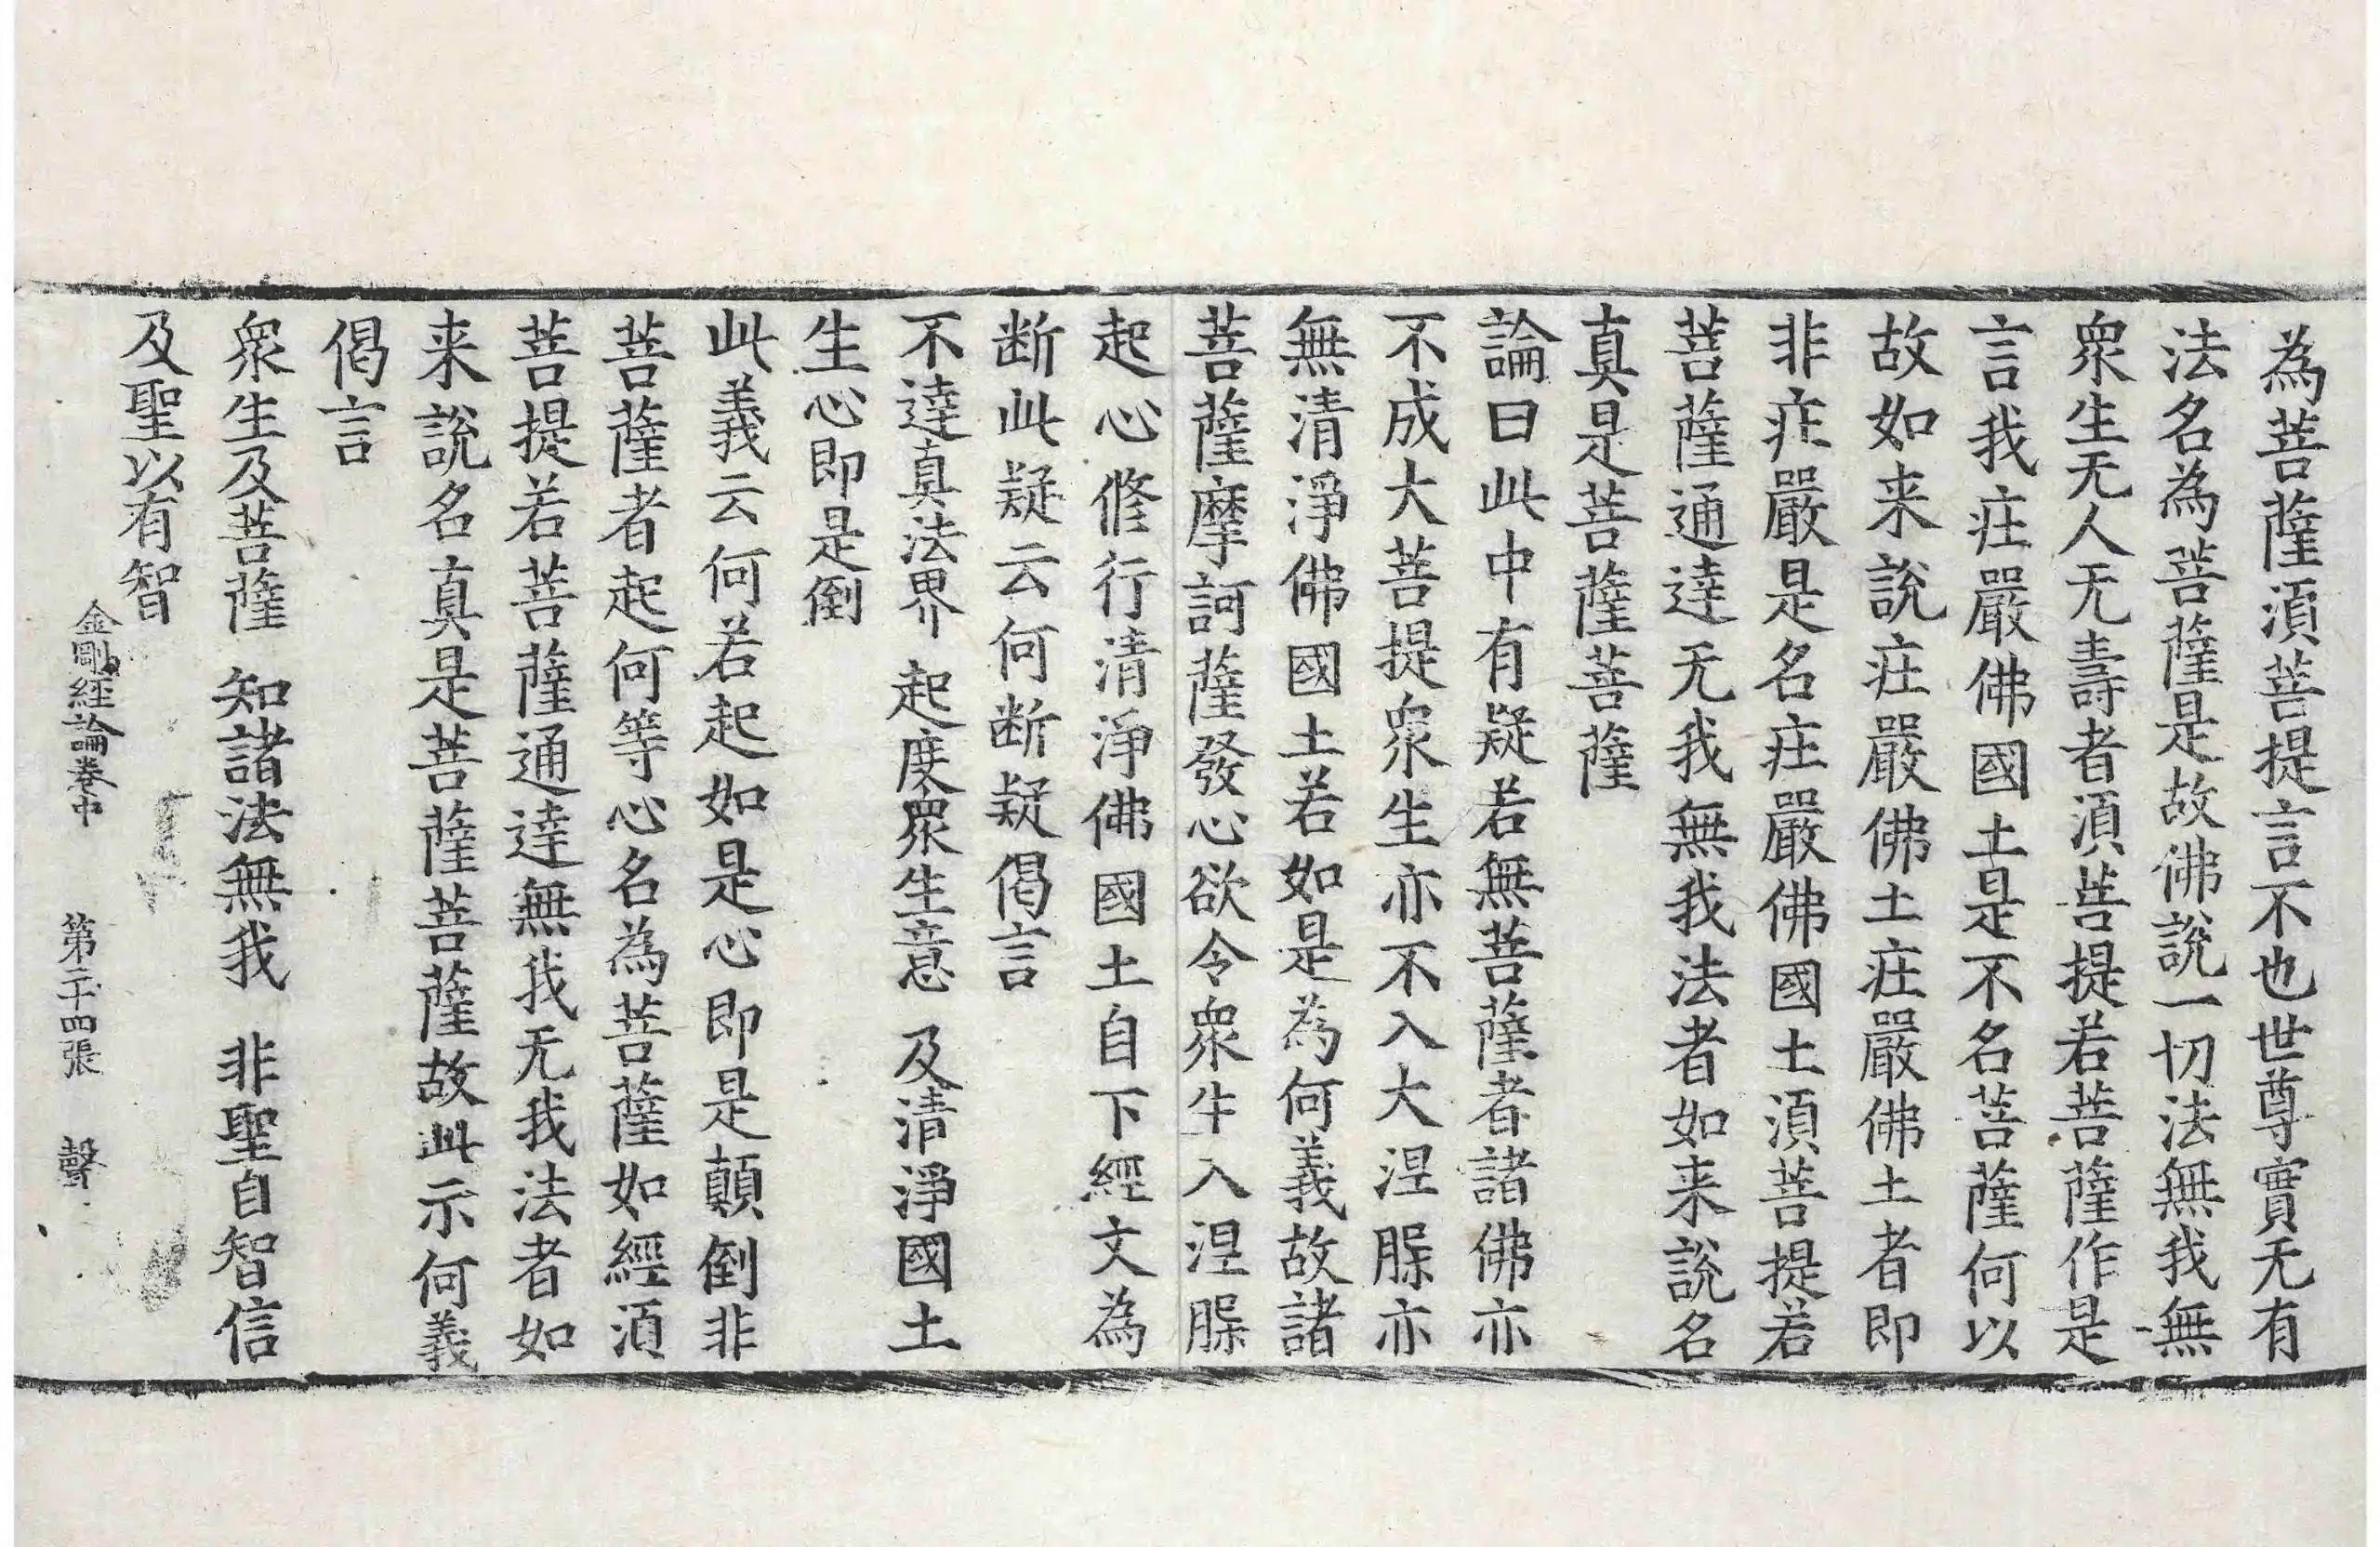 為菩薩湏菩提言不也世尊實无有
法名為菩薩是故佛說一切法無我無
衆生无人无壽者湏菩提若菩薩作是
言我㽵嚴佛國土是不名菩薩何以
故如来說㽵嚴佛土㽵嚴佛土者即
非㽵嚴是名㽵嚴佛國土湏菩提若
菩薩通達无我無我法者如来說名
真是菩薩菩薩
論曰此中有疑若無菩薩者諸佛亦
不成大菩提衆生亦不入大涅脲亦
無清淨佛國土若如是為何義故諸
菩薩摩訶薩發心欲令衆生入涅脲
起心修行清淨佛國土自下經文為
断此疑云何断疑偈言
不達真法界 起度衆生意 及清淨國土
生心即是倒
此義云何若起如是心即是顛倒非
菩薩者起何等心名為菩薩如經湏
菩提若菩薩通達無我无我法者如
来說名真是菩薩菩薩故此示何義
偈言
衆生及菩薩 知諸法無我 非聖自智信
及聖以有智
金剛經論卷中 第二十四張 聲